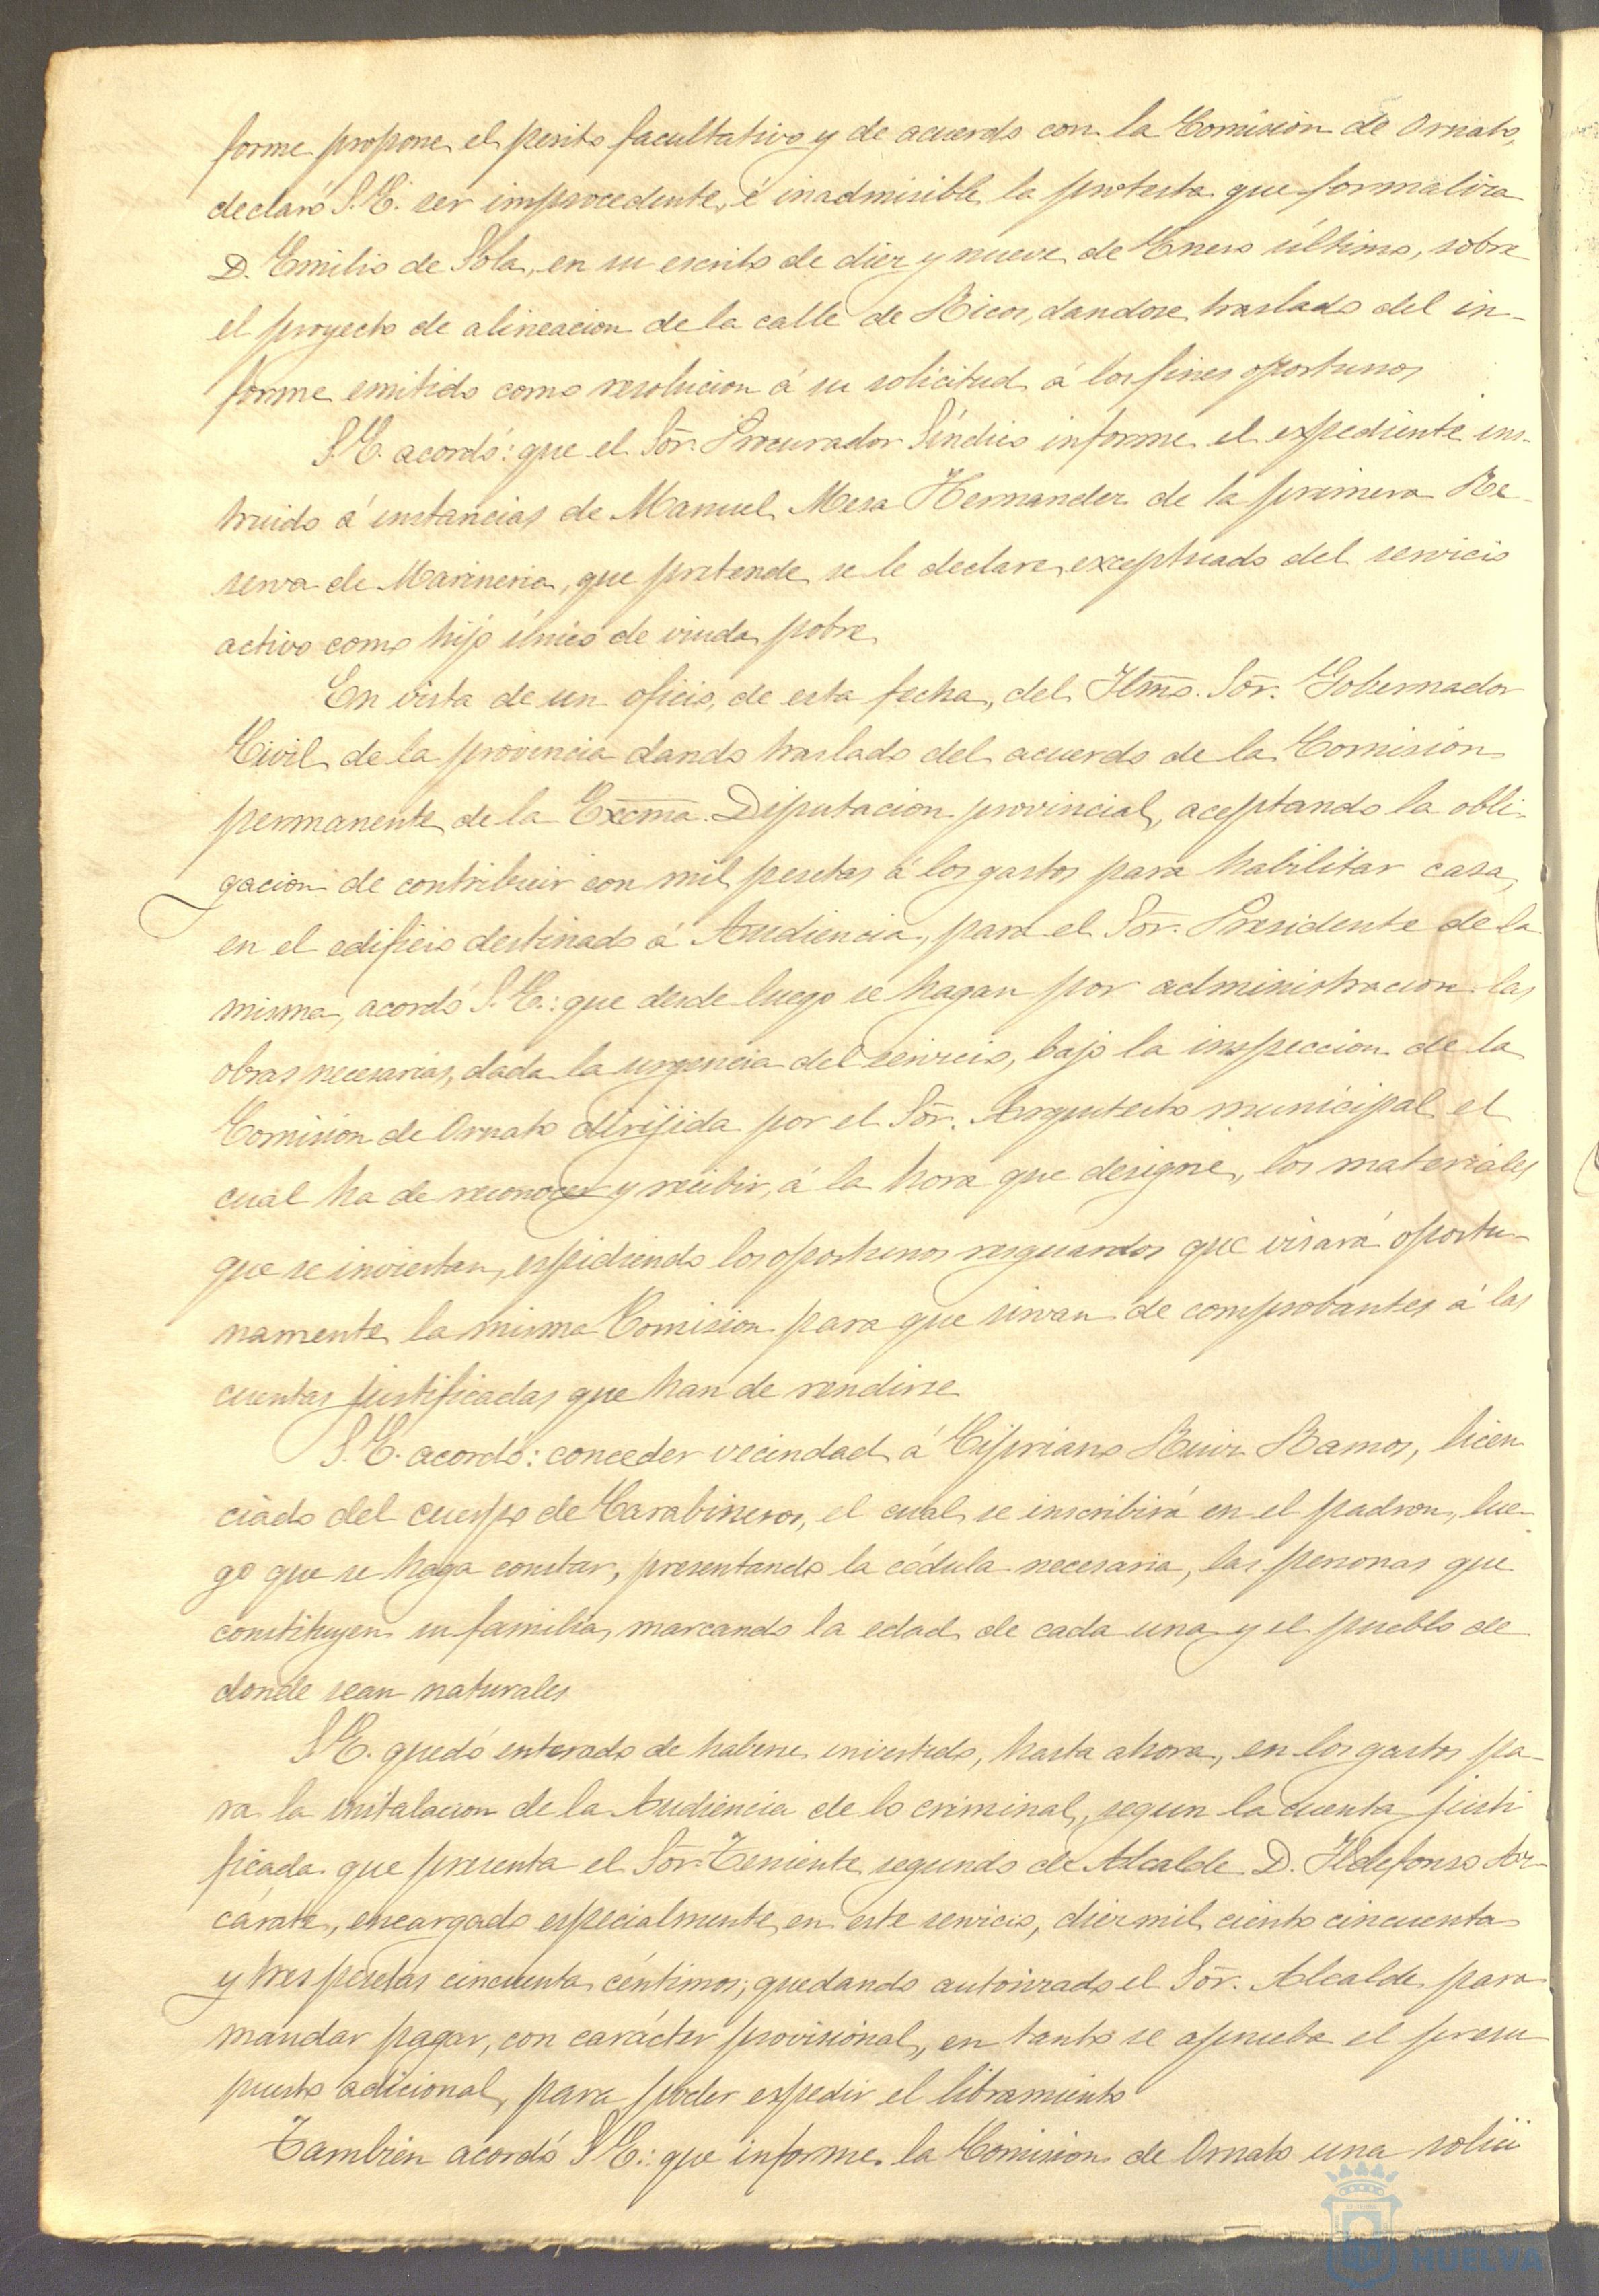 forme propone el perito facultativo y de acuerdo con la Comisión de Ornato,
declaró S.E. ser improcedente, é inadmisible la protesta que formaliza
D. Emilio de Sola, en su escrito de diez y nueve de Enero último, sobre
el proyecto de alineacion de la calle de Ricos, dandose traslado del in-
forme emitido como resolucion á su solicitud á los fines oportunos
S.E. acordó: que el Sōr. Procurador Síndico informe el expediente ins-
truido á instancias de Manuel Mesa Hernandez de la primera Re-
serva de Marineria, que pretende se le declare exceptuado del servicio
activo como hijo único de viuda pobre
En vista de un oficio, de esta fecha, del Ilmo. Sōr. Gobernador
Civil de la provincia dando traslado del acuerdo de la Comisión
permanente de la Excma. Diputacion provincial, aceptando la obli-
gacion de contribuir con mil pesetas á los gastos para habilitar casa,
en el edificio destinado á Audiencia, para el Sōr. Presidente de la
misma, acordó S.E.: que desde luego se hagan por administracion las
obras necesarias, dada la urgencia del servicio, bajo la inspeccion de la
Comision de Ornato dirijida por el Sōr. Arquitecto municipal el
cual ha de reconocer y recibir, á la hora que designe, los materiales
que se inviertan, espidiendo los oportunos resguardos que visará oportu-
namente la misma Comision para que sirvan de comprobantes á las
cuentas justificadas que han de rendirse
S.E. acordó: conceder vecindad á Cipriano Ruiz Ramos, licen
ciado del cuerpo de Carabineros, el cual se inscribirá en el padron, lue-
go que se haga constar, presentando la cédula necesaria, las personas que
constituyen su familia, marcando la edad de cada una y el pueblo de
donde sean naturales
S.E. quedó enterado de haberse invertido, hasta ahora, en los gastos pa-
ra la instalacion de la Audiencia de lo criminal, segun la cuenta justi
ficada que presenta el Sōr. Teniente segundo de Alcalde D. Ildefonso Az-
cárate, encargado especialmente en este servicio, diez mil ciento cincuenta
y tres pesetas cincuenta céntimos; quedando autorizado el Sōr. Alcalde para
mandar pagar, con carácter provisional, en tanto se aprueba el presu
puesto adicional, para poder espedir el libramiento
Tambien acordó S.E.: que informe la Comision de Ornato una solici
HUELVA